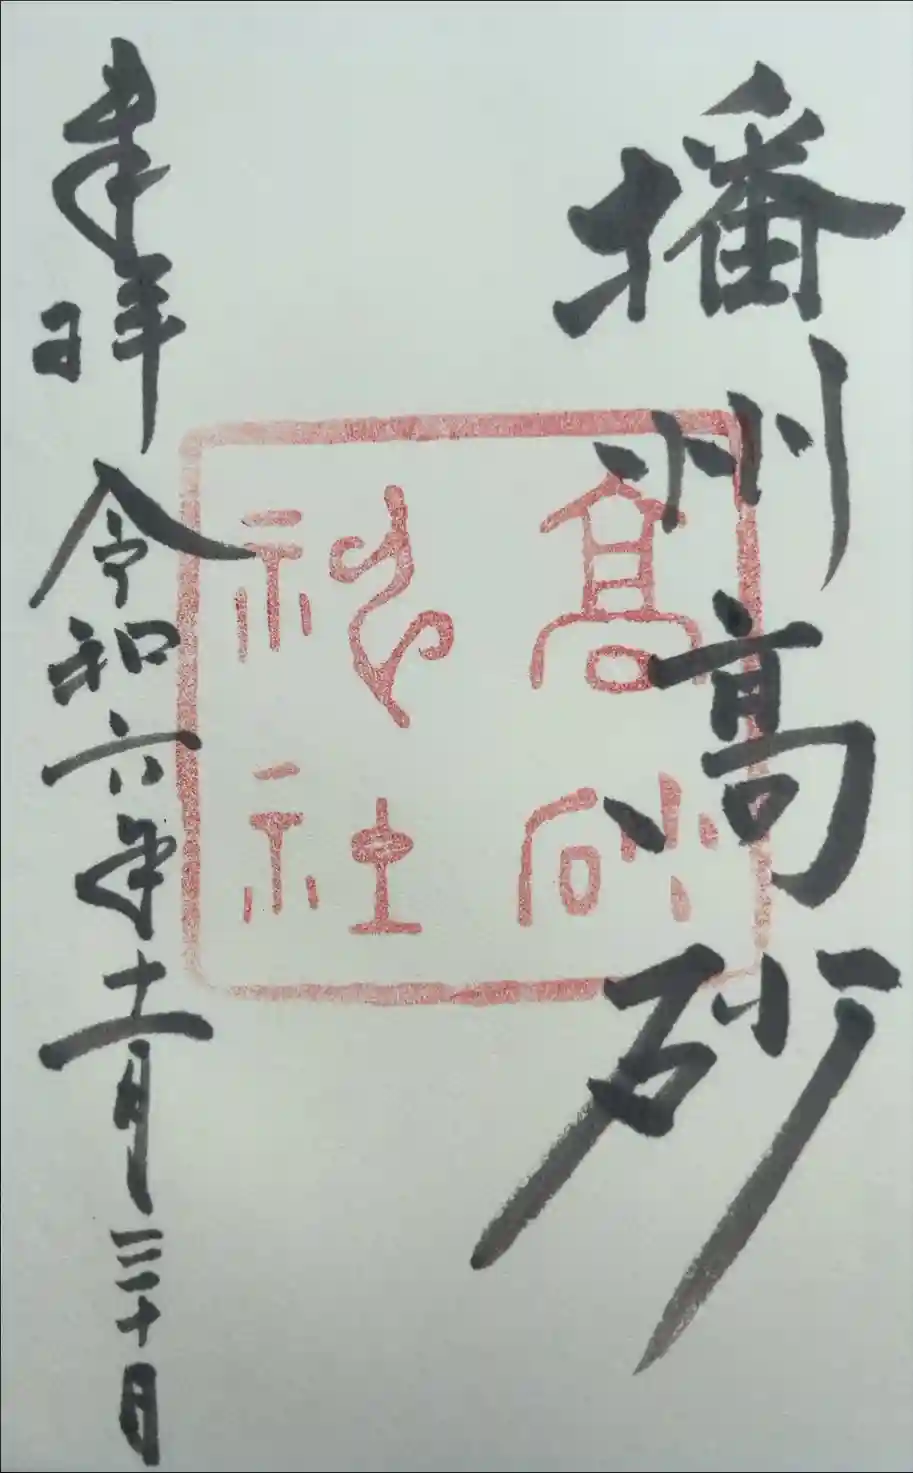 播州高砂
高砂
神社
奉拝 令和六年十一月三十日